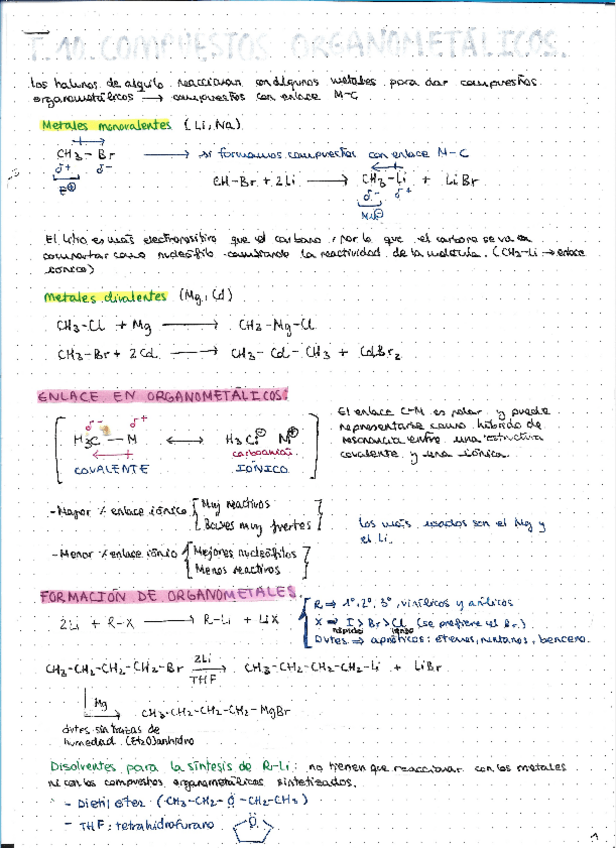 T.10. COMPUESTOS ORGANOMETÁLICOS.
Los haluros de alquilo reaccionan con algunos metales para dar compuestos
organometálicos → compuestos con enlace M-C
Metales monovalentes (Li, Na)
CH3 – Br → si formamos compuestos con enlace M-C
δ+ δ-
E⊕
CH-Br + 2Li → CH3-Li + LiBr
δ- δ+
Nu⊖
El litio es más electropositivo que el carbono, por lo que el carbono se va a
comportar como nucleófilo cambiando la reactividad de la molécula. (CH3-Li → enlace
iónico)
Metales divalentes (Mg, Cd)
CH3-Cl + Mg → CH3-Mg-Cl
CH3-Br + 2Cd → CH3-Cd-CH3 + CdBr2
ENLACE EN ORGANOMETÁLICOS:
δ- δ+
H3C — M ↔ H3C⊖ M⊕
carboanión
COVALENTE IÓNICO
El enlace C-M es polar y puede
representarse como híbrido de
resonancia entre una estructura
covalente y una iónica.
-Mayor % enlace iónico { Muy reactivos
Bases muy fuertes }
-Menor % enlace iónico { Mejores nucleófilos
Menos reactivos }
Los más usados son el Mg y
el Li.
FORMACIÓN DE ORGANOMETALES.
2Li + R-X → R-Li + LiX
R ⇒ 1º, 2º, 3º, vinílicos y arílicos
X ⇒ I > Br > Cl (se prefiere el Br)
rápido lento
Dvtes ⇒ apróticos: éteres, pentanos, benceno.
CH3-CH2-CH2-CH2-Br 2Li → THF CH3-CH2-CH2-CH2-Li + LiBr
Mg → CH3-CH2-CH2-CH2-MgBr
dvtes sin trazas de
humedad (Et2O) anhidro
Disolventes para la síntesis de R-Li: no tienen que reaccionar con los metales
ni con los compuestos organometálicos sintetizados.
- Dietil éter (CH3-CH2-O-CH2-CH3)
- THF: tetrahidrofurano O
1